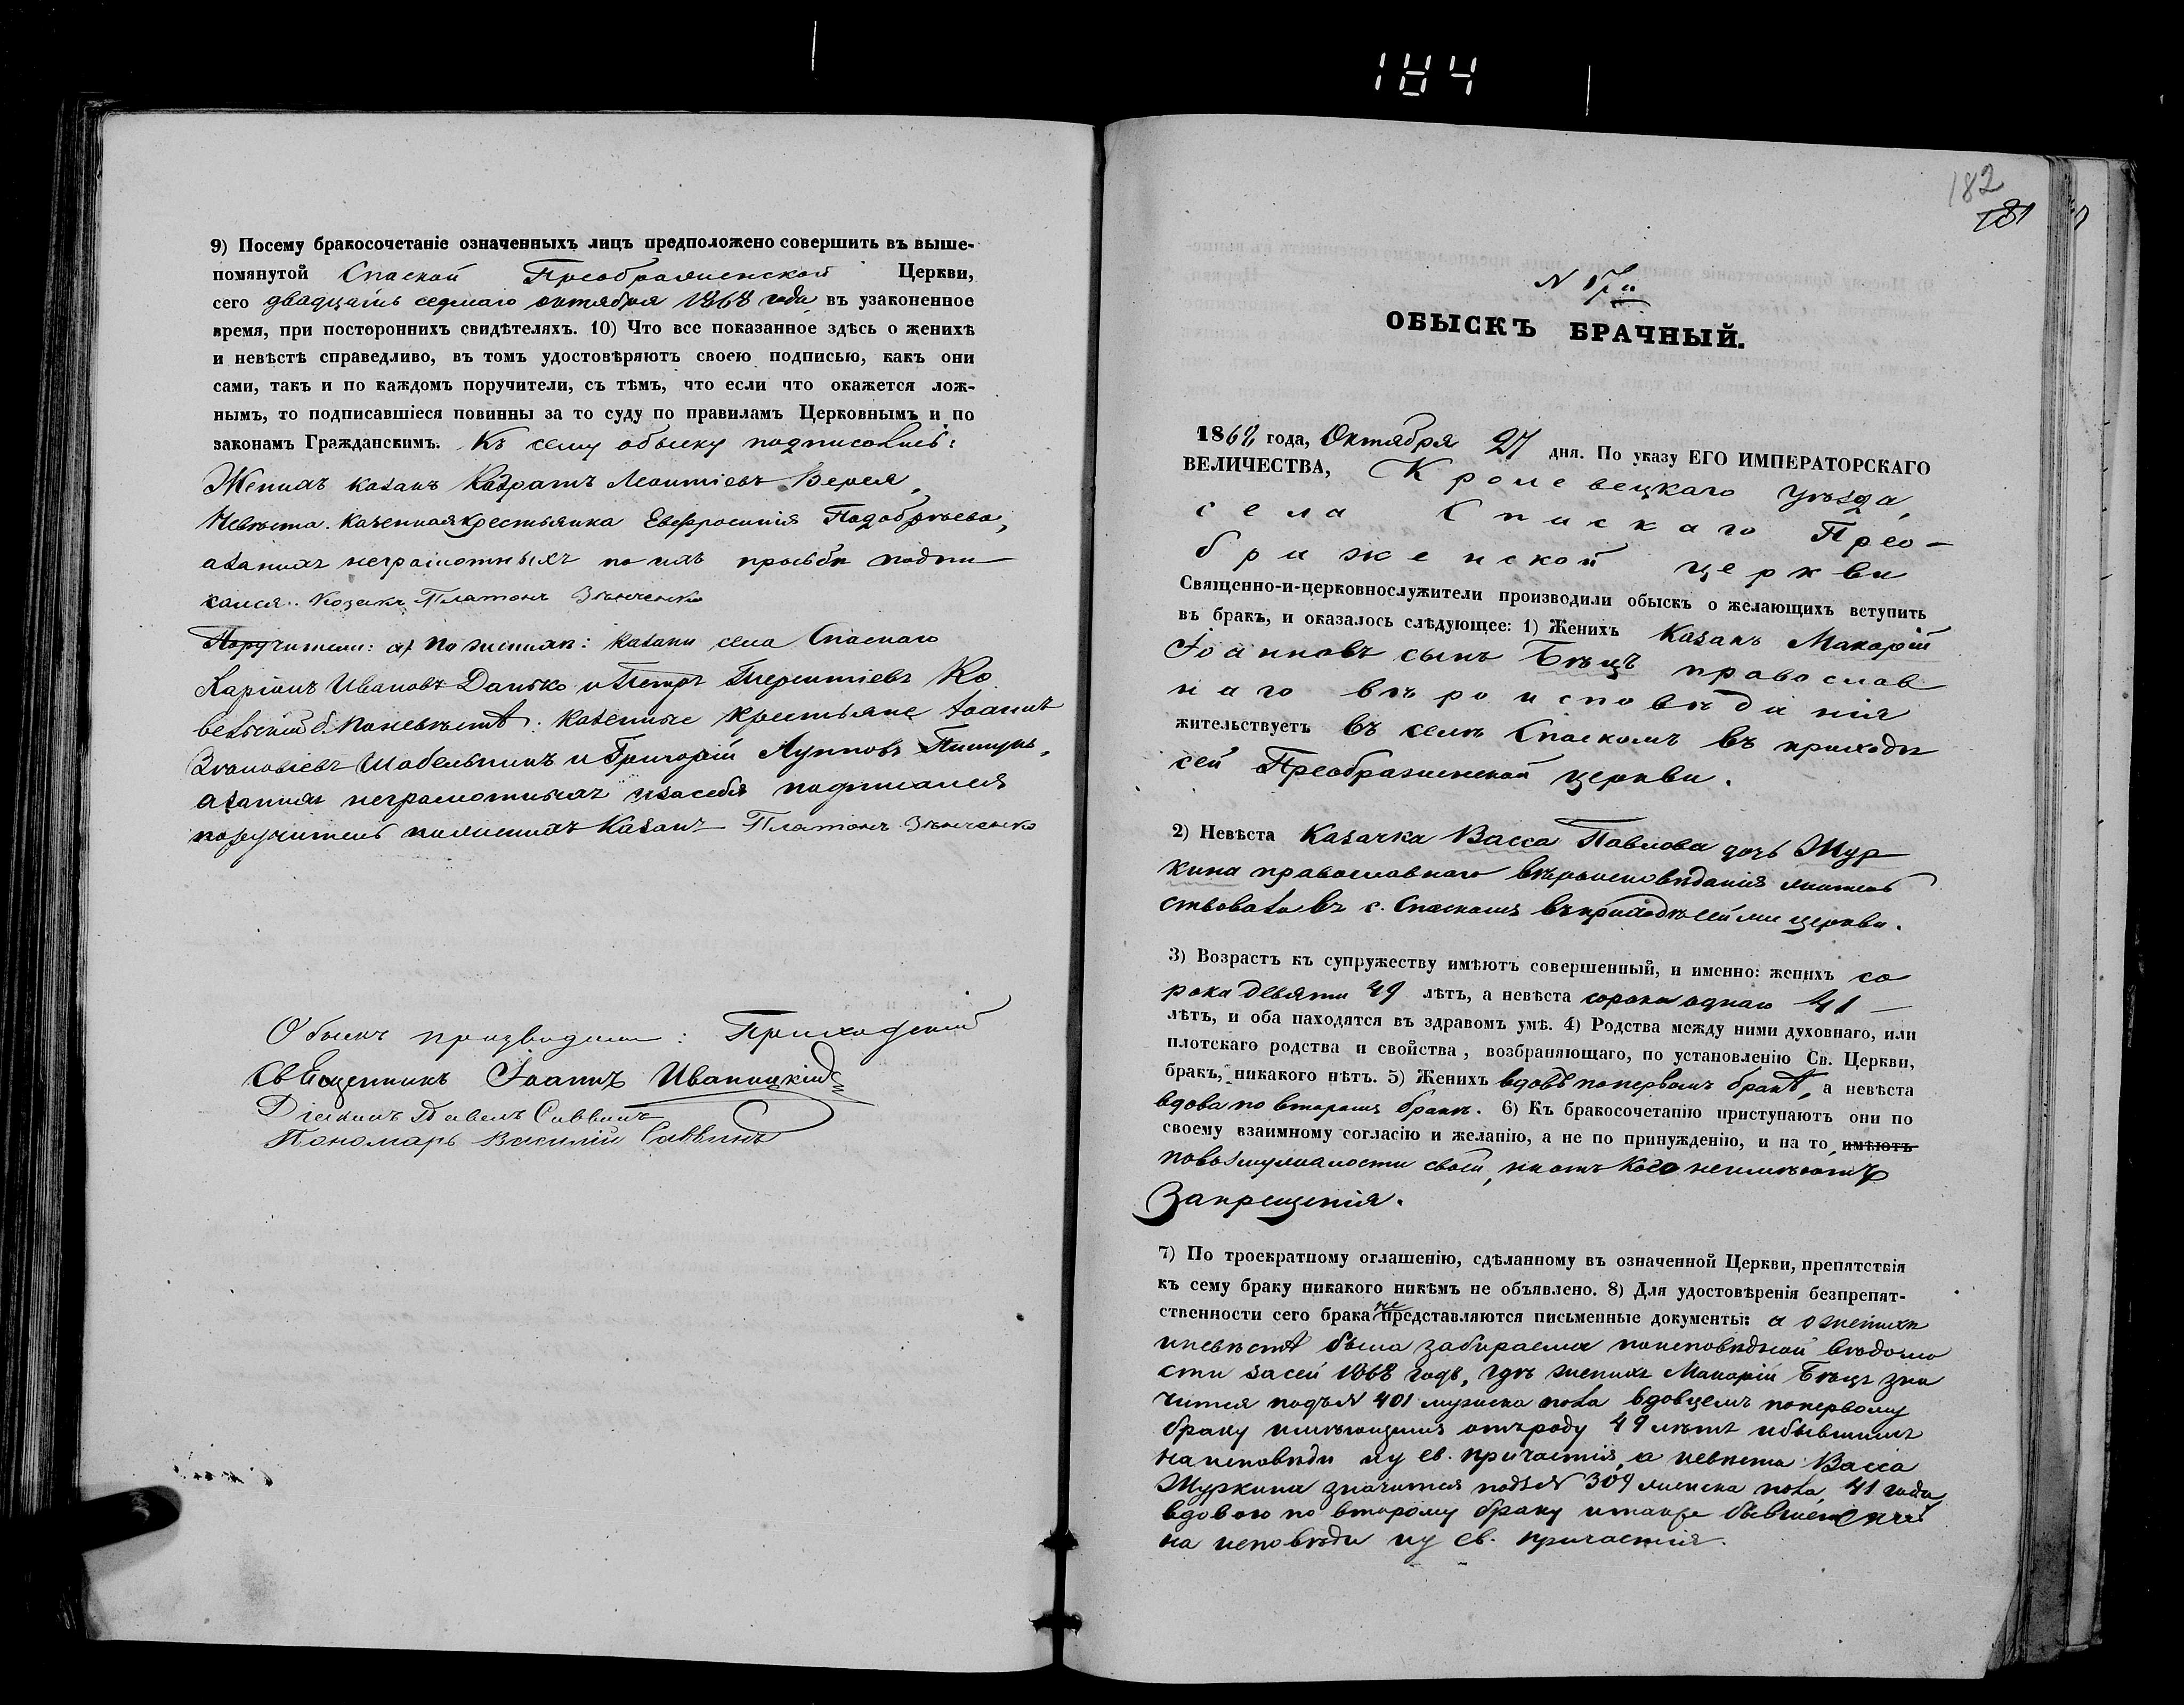 184
9) Посему бракосочетаніе означенныхъ лицъ предположено совершить въ выше-
помянутой Спаской Преображенской Церкви,
сего двадцать седмаго октября 1868 года въ узаконенное
время, при постороннихъ свидѣтеляхъ. 10) Что все показанное здѣсь о женихѣ
и невѣстѣ справедливо, въ томъ удостовѣряютъ своею подписью, какъ они
сами, такъ и по каждомъ поручители, съ тѣмъ, что если что окажется лож-
нымъ, то подписавшіеся повинны за то суду по правиламъ Церковнымъ и по
законамъ Гражданскимъ. Къ сему обыску подписались:
Женихъ казакъ Леонтіевъ Верея,
Невѣста казенная крестьянка Евфросинія
азанихъ неграмотныхъ по ихъ просьбѣ подпи
сался Козакъ Платонъ
Поручители: а) По женихѣ: казаки села Спаскаго
Иванов Данько и Петръ Терентіевъ Ко
вевскій б. Поневѣстѣ: казенные крестьяне Іоаннъ
Зѣновіевъ Шабельникъ и Григорій
азанихъ неграмотныхъ изасебя подписался
поручитель поженихѣ Казакъ Платонъ
Обыскъ производили: Приходскій
Священникъ Іоаннъ Иваницкій
Діяконъ Павелъ Саввинъ
Пономарь Василій Саввинъ
182
181
N
ОБЫСКЪ БРАЧНЫЙ.
1868 года, Октября 27 дня. По указу ЕГО ИМПЕРАТОРСКАГО
ВЕЛИЧЕСТВА, Кролевецкаго уѣзда,
села Спаскаго Прео-
браженской церкви
Священно-и-церковнослужители производили обыскъ о желающихъ вступить
въ бракъ, и оказалось слѣдующее: 1) Женихъ Казакъ Макарій
Іоанновъ сынъ Бѣицъ православ
наго вѣроисповѣданія
жительствуетъ въ селѣ Спаскомъ въ приходѣ
сей Преображенской церкви.
2) Невѣста Казачка Васса Павлова дочь Жур
кина православнаго вѣроисповѣданія житель
ствовала въ с. Спаскомъ въ приходѣ сей же церкви.
3) Возрастъ къ супружеству имѣютъ совершенный, и именно: женихъ со
рока девяти 49 лѣтъ, а невѣста сорока однаго 41 —
лѣтъ, и оба находятся въ здравомъ умѣ. 4) Родства между ними духовнаго, или
плотскаго родства и свойства, возбраняющаго, по установленію Св. Церкви,
бракъ, никакого нѣтъ. 5) Женихъ вдовъ поперьвомъ бракѣ, а невѣста
вдова по второмъ бракѣ. 6) Къ бракосочетанію приступаютъ они по
своему взаимному согласію и желанію, а не по принужденію, и на то имѣютъ
повозмужалости своей, ни отъ кого неимѣютъ
Запрещенія.
7) По троекратному оглашенію, сдѣланному въ означенной Церкви, препятствія
къ сему браку никакого никѣмъ не объявлено. 8) Для удостовѣренія безпрепят-
ственности сего брака не представляются письменные документы: а о женихѣ
иневѣстѣ была забираема поисповѣдной вѣдомо
сти засей 1868 годъ, гдѣ женихъ Макарій Бѣицъ зна
чится подъ N 401 мужска пола вдовцемъ поперьвому
браку имѣющимъ отъроду 49 лѣтъ ибывшимъ
на исповѣди иу св. причастія, а невѣста Васса
Журкина значится подъ N 304 женска пола, 41 года
вдовою по второму браку итакже бывшею
на исповѣди иу св. причастія.